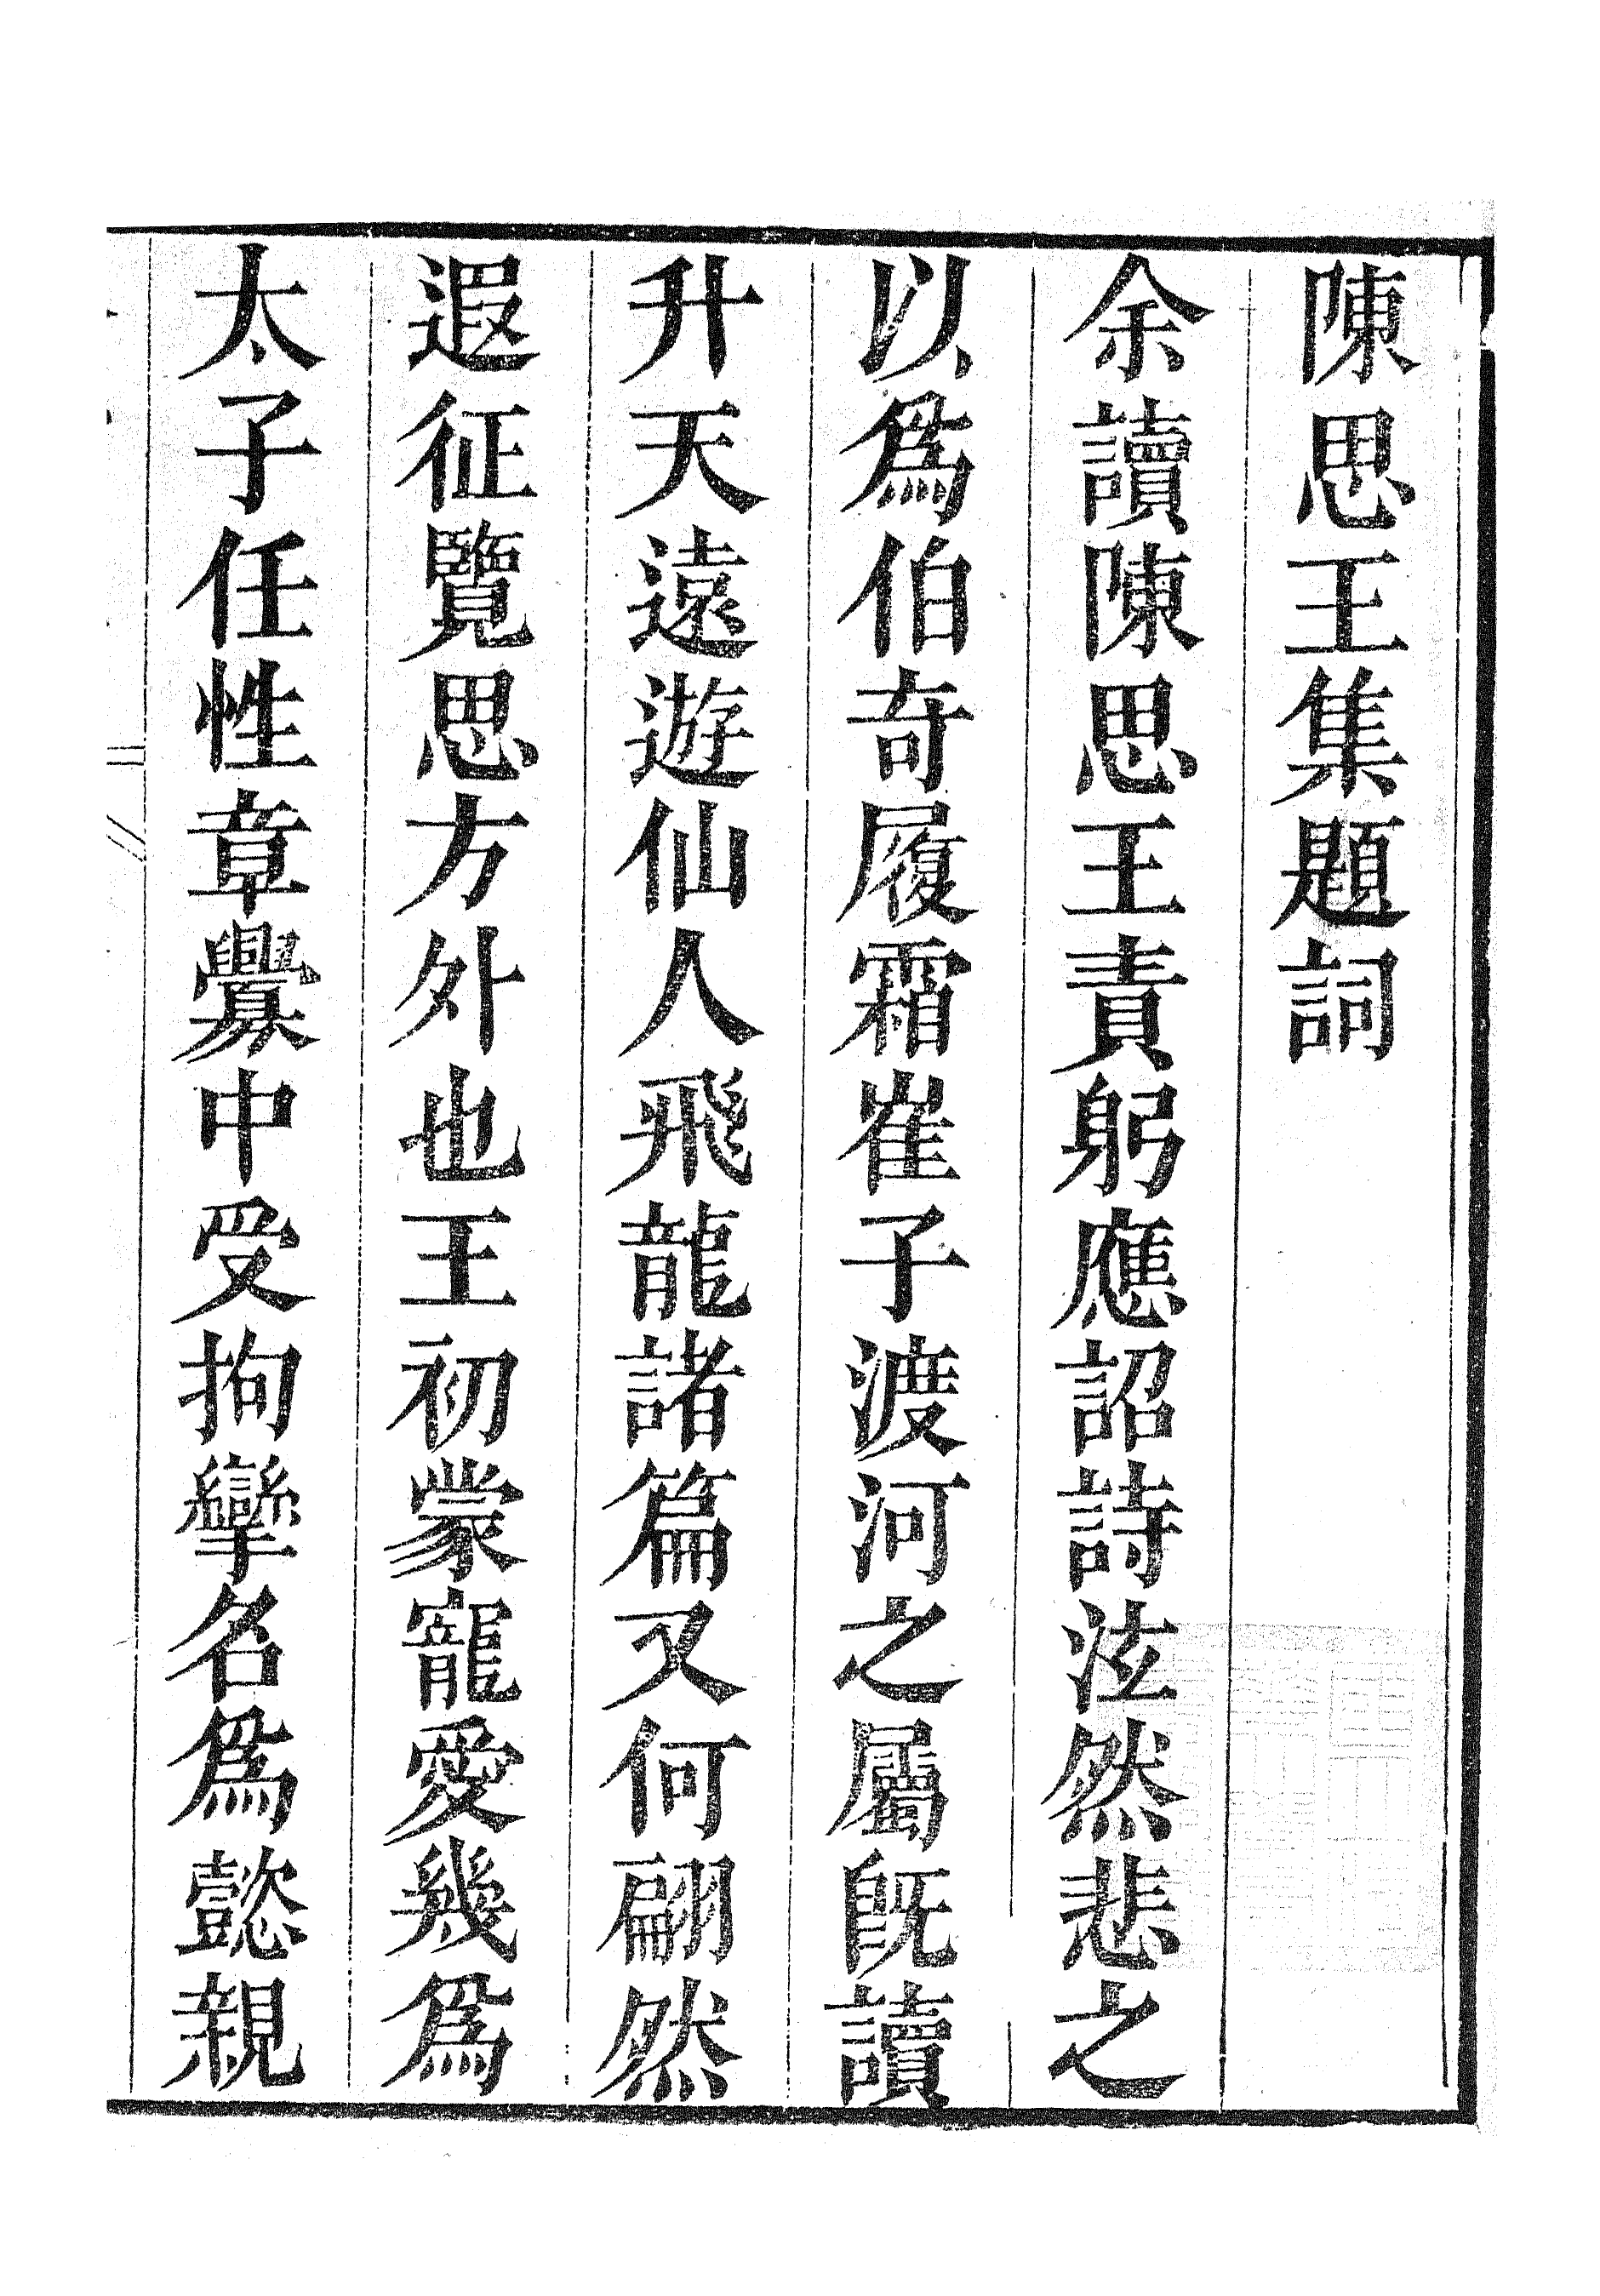 陳思王集題詞
余讀陳思王責躬應詔詩泫然悲之
以爲伯奇履霜崔子渡河之屬既讀
升天遠遊仙人飛龍諸篇又何翩然
遐征覽思方外也王初蒙寵愛幾爲
太子任性章釁中受拘攣名爲懿親